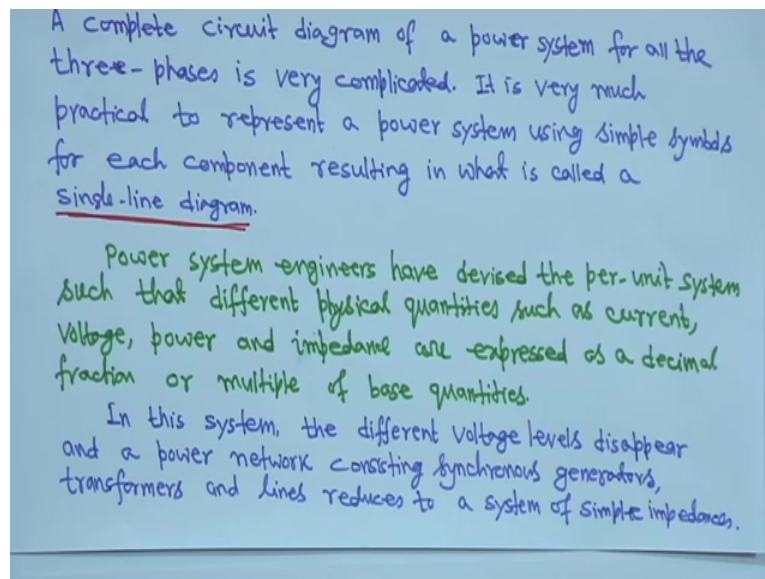 A complete circuit diagram of a power system for all the
three-phases is very complicated. It is very much
practical to represent a power system using simple symbols
for each component resulting in what is called a
single-line diagram.
Power system engineers have devised the per-unit system
such that different physical quantities such as current,
voltage, power and impedance are expressed as a decimal
fraction or multiple of base quantities.
In this system, the different voltage levels disappear
and a power network consisting synchronous generators,
transformers and lines reduces to a system of simple impedances.